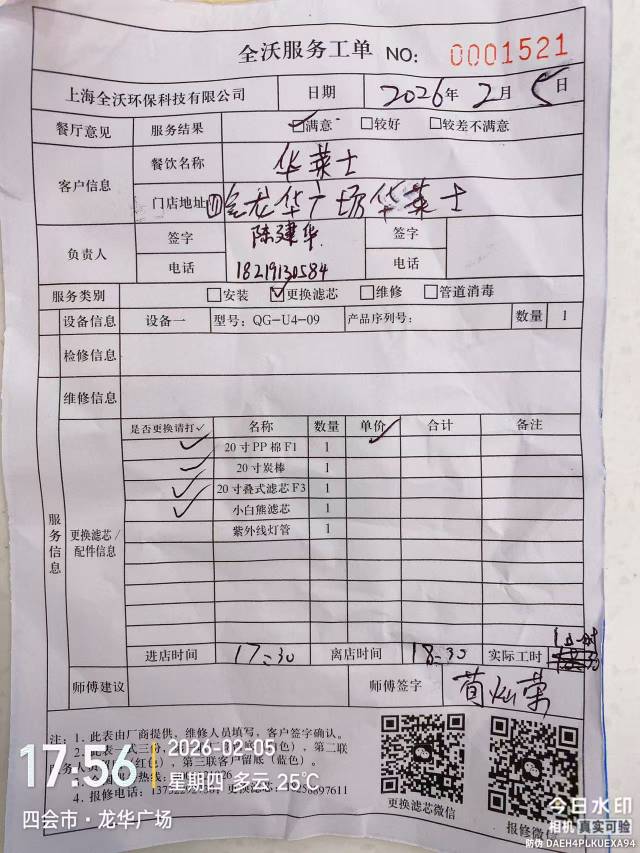 全沃服务工单 NO: 0001521
上海全沃环保科技有限公司 日期 2026年 2月 5日
餐厅意见 服务结果 ☑满意 □较好 □较差不满意
客户信息 餐饮名称 华莱士
门店地址 四会龙华广场华莱士
负责人 签字 陈建华 签字
电话 18219130584 电话
服务类别 □安装 ☑更换滤芯 □维修 □管道消毒
设备信息 设备一 型号: QG-U4-09 产品序列号: 数量 1
检修信息
维修信息
服务信息
更换滤芯/配件信息
是否更换请打✓ 名称 数量 单价 合计 备注
✓ 20寸PP棉F1 1
✓ 20寸炭棒 1
✓ 20寸叠式滤芯F3 1
✓ 小白熊滤芯 1
紫外线灯管 1
进店时间 17:30 离店时间 18:30 实际工时
师傅建议 师傅签字
注: 1. 此表由厂商提供, 维修人员填写, 客户签字确认。
更换滤芯微信
报修微信
17:56
2026-02-05
星期四 多云 25℃
四会市·龙华广场
今日水印
相机 真实可验
防伪 DAEH4PLKUEXA94